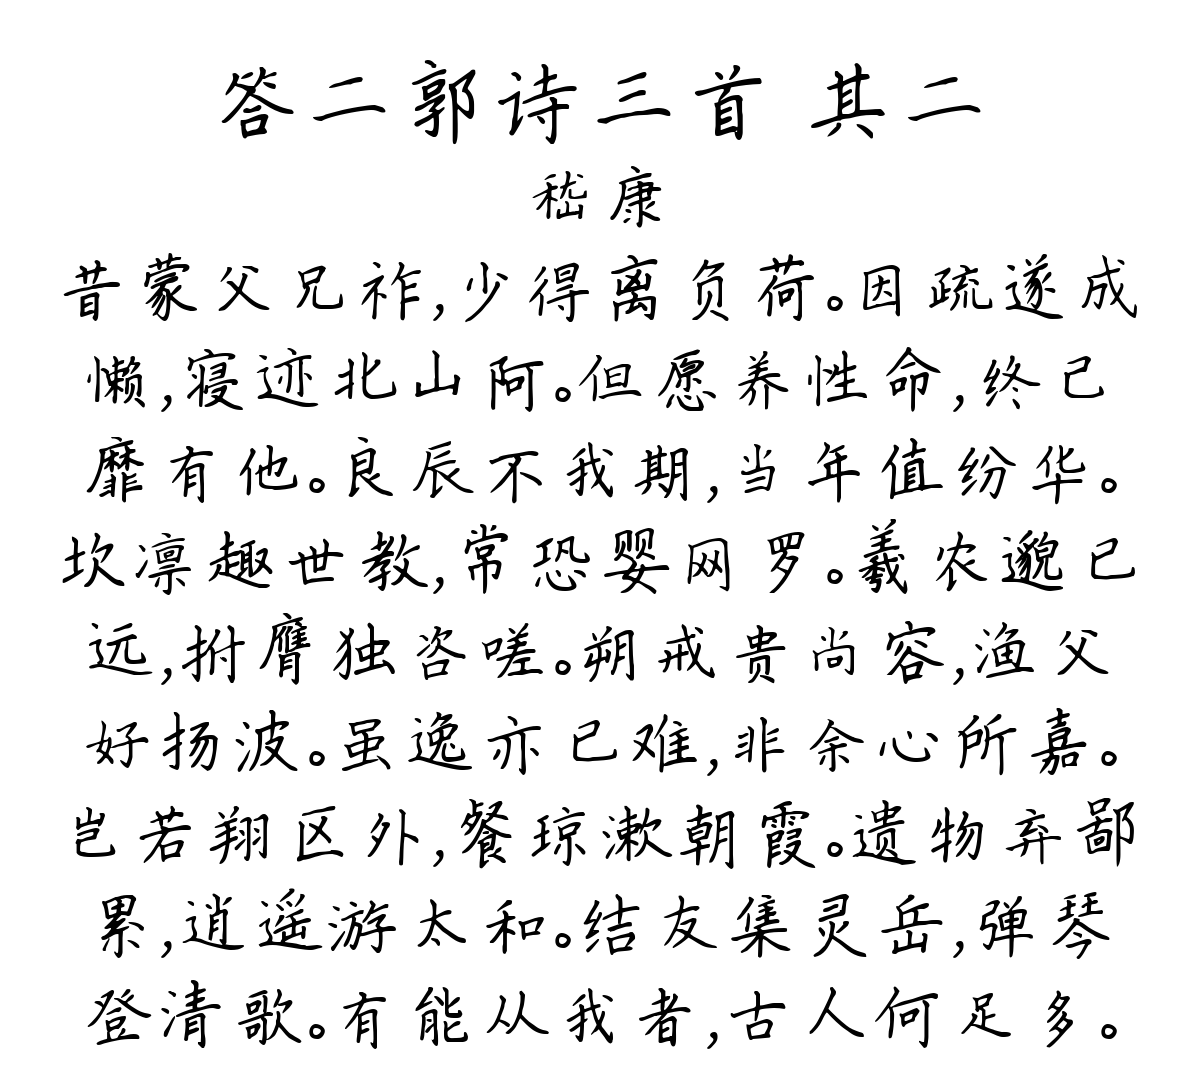 答二郭诗三首 其二
嵇康
昔蒙父兄祚,少得离负荷。因疏遂成
懒,寝迹北山阿。但愿养性命,终己
靡有他。良辰不我期,当年值纷华。
坎凛趣世教,常恐婴网罗。羲农邈已
远,拊膺独咨嗟。朔戒贵尚容,渔父
好扬波。虽逸亦已难,非余心所嘉。
岂若翔区外,餐琼漱朝霞。遗物弃鄙
累,逍遥游太和。结友集灵岳,弹琴
登清歌。有能从我者,古人何足多。